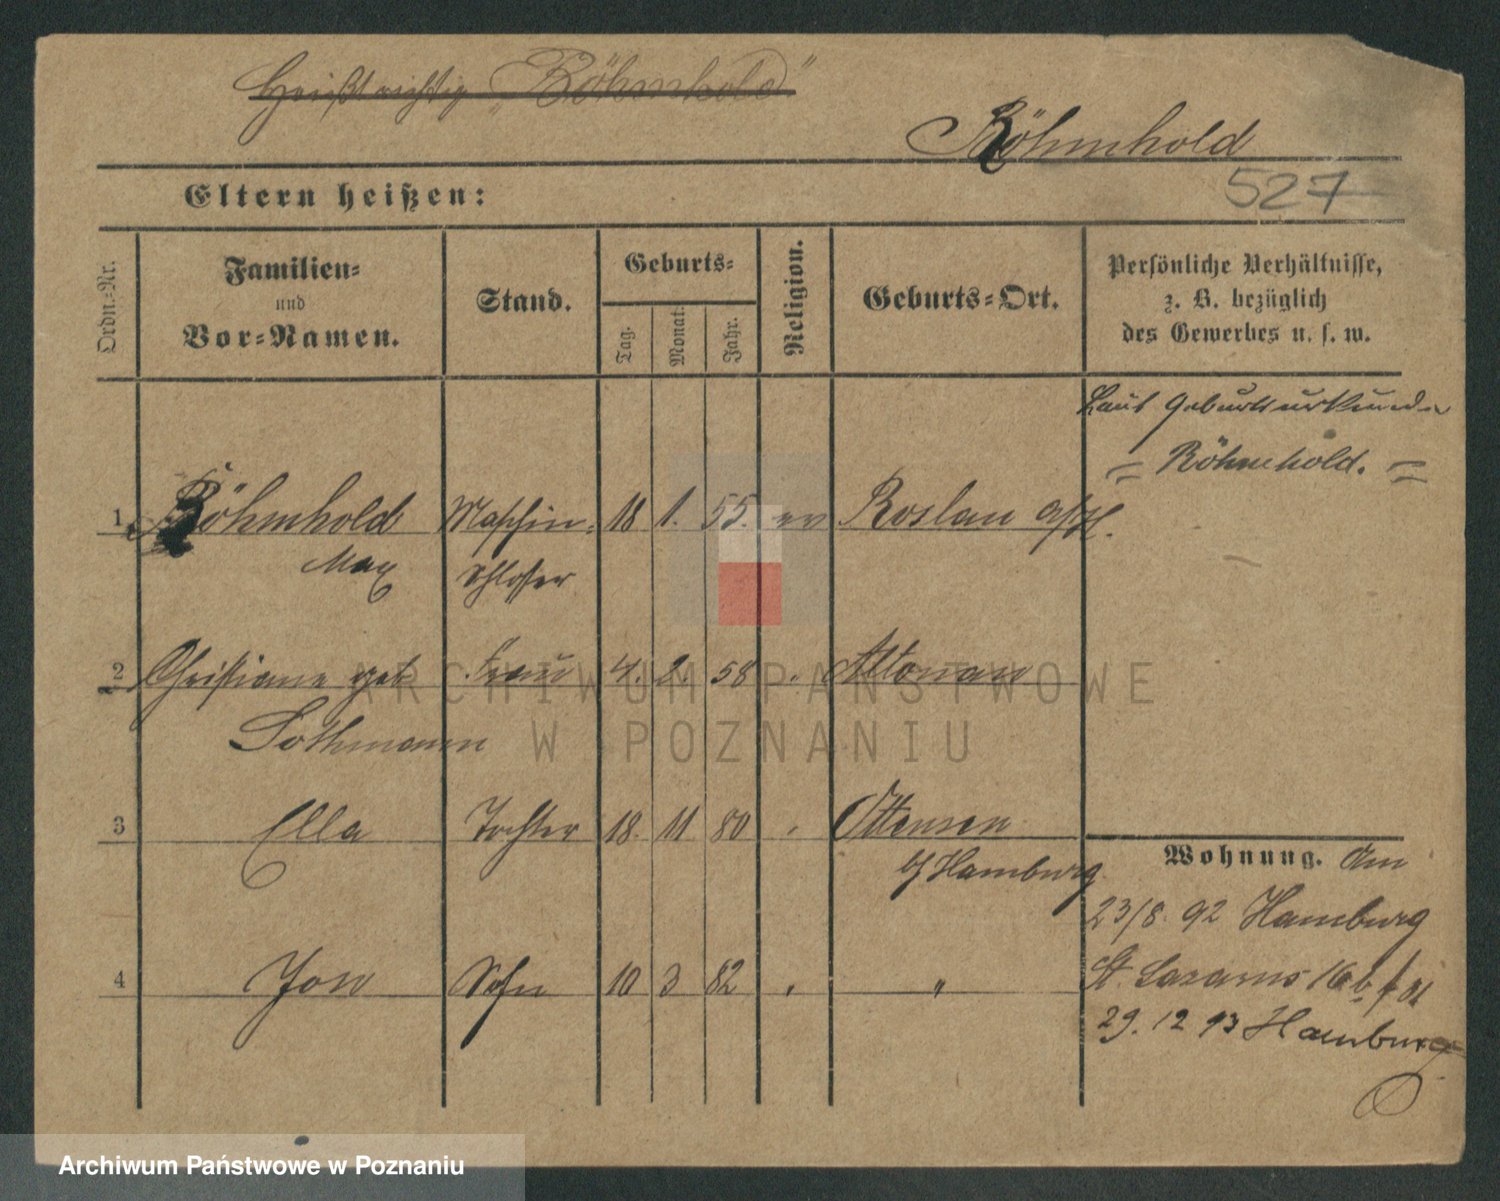 Heißt richtig „Röhmhold”
Röhmhold
Eltern heißen:
527
Ordn.-Nr.
Familien-
und
Vor-Namen.
Stand.
Geburts-
Tag.
Monat.
Jahr.
Religion.
Geburts-Ort.
Persönliche Verhältnisse,
z. B. bezüglich
des Gewerbes u. s. w.
Laut Geburtsurkunde
= Röhmhold. =
1 Röhmhold Maschin- 18 1. 55. ev Roslau
Max schlosser
2 Christiane geb Frau 4. 2. 58 " Altonau
Sothmann
3 Ella Tochter 18. 11 80 " Ottensen
b/ Hamburg
Wohnung. Am
23/8. 92 Hamburg
4 Jon Sohn 10 3 82 " "
St. Lazarus 16b
29. 12 93 Hamburg
ARCHIWUM PAŃSTWOWE
W POZNANIU
Archiwum Państwowe w Poznaniu